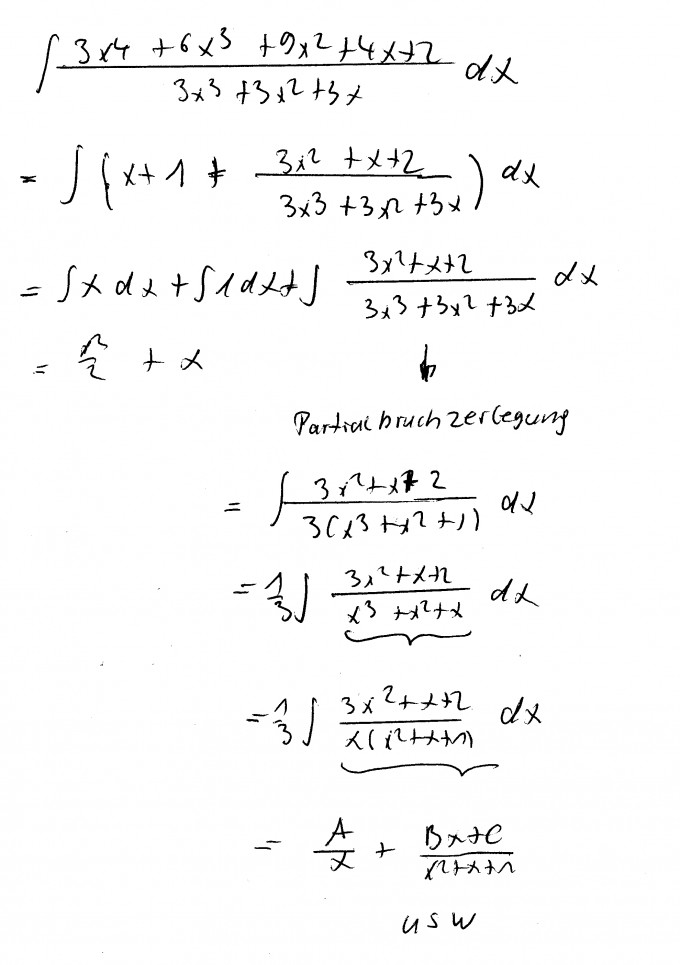 ∫ (3x⁴ + 6x³ + 9x² + 4x + 2)/(3x³ + 3x² + 3x) dx
= ∫ (x + 1 + (3x² + x + 2)/(3x³ + 3x² + 3x)) dx
= ∫ x dx + ∫ 1 dx + ∫ (3x² + x + 2)/(3x³ + 3x² + 3x) dx
= x²/2 + x ↓
Partialbruchzerlegung
= ∫ (3x² + x + 2)/(3(x³ + x² + 1)) dx
= 1/3 ∫ (3x² + x + 2)/(x³ + x² + x) dx
= 1/3 ∫ (3x² + x + 2)/(x(x² + x + 1)) dx
= A/x + (Bx + C)/(x² + x + 1)
usw